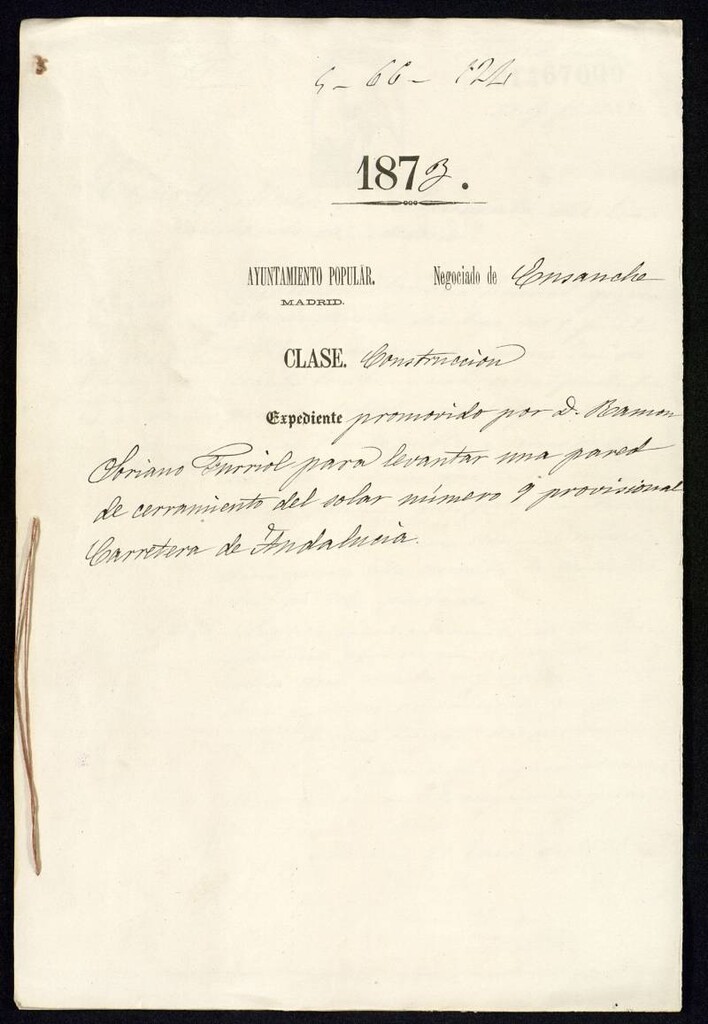 5-66-124
1873.
AYUNTAMIENTO POPULAR. Negociado de Ensanche
MADRID.
CLASE. Construccion
Expediente promovido por D. Ramon
Soriano Furriol para levantar una pared
de cerramiento del solar número 9 provisional
Carretera de Andalucia.